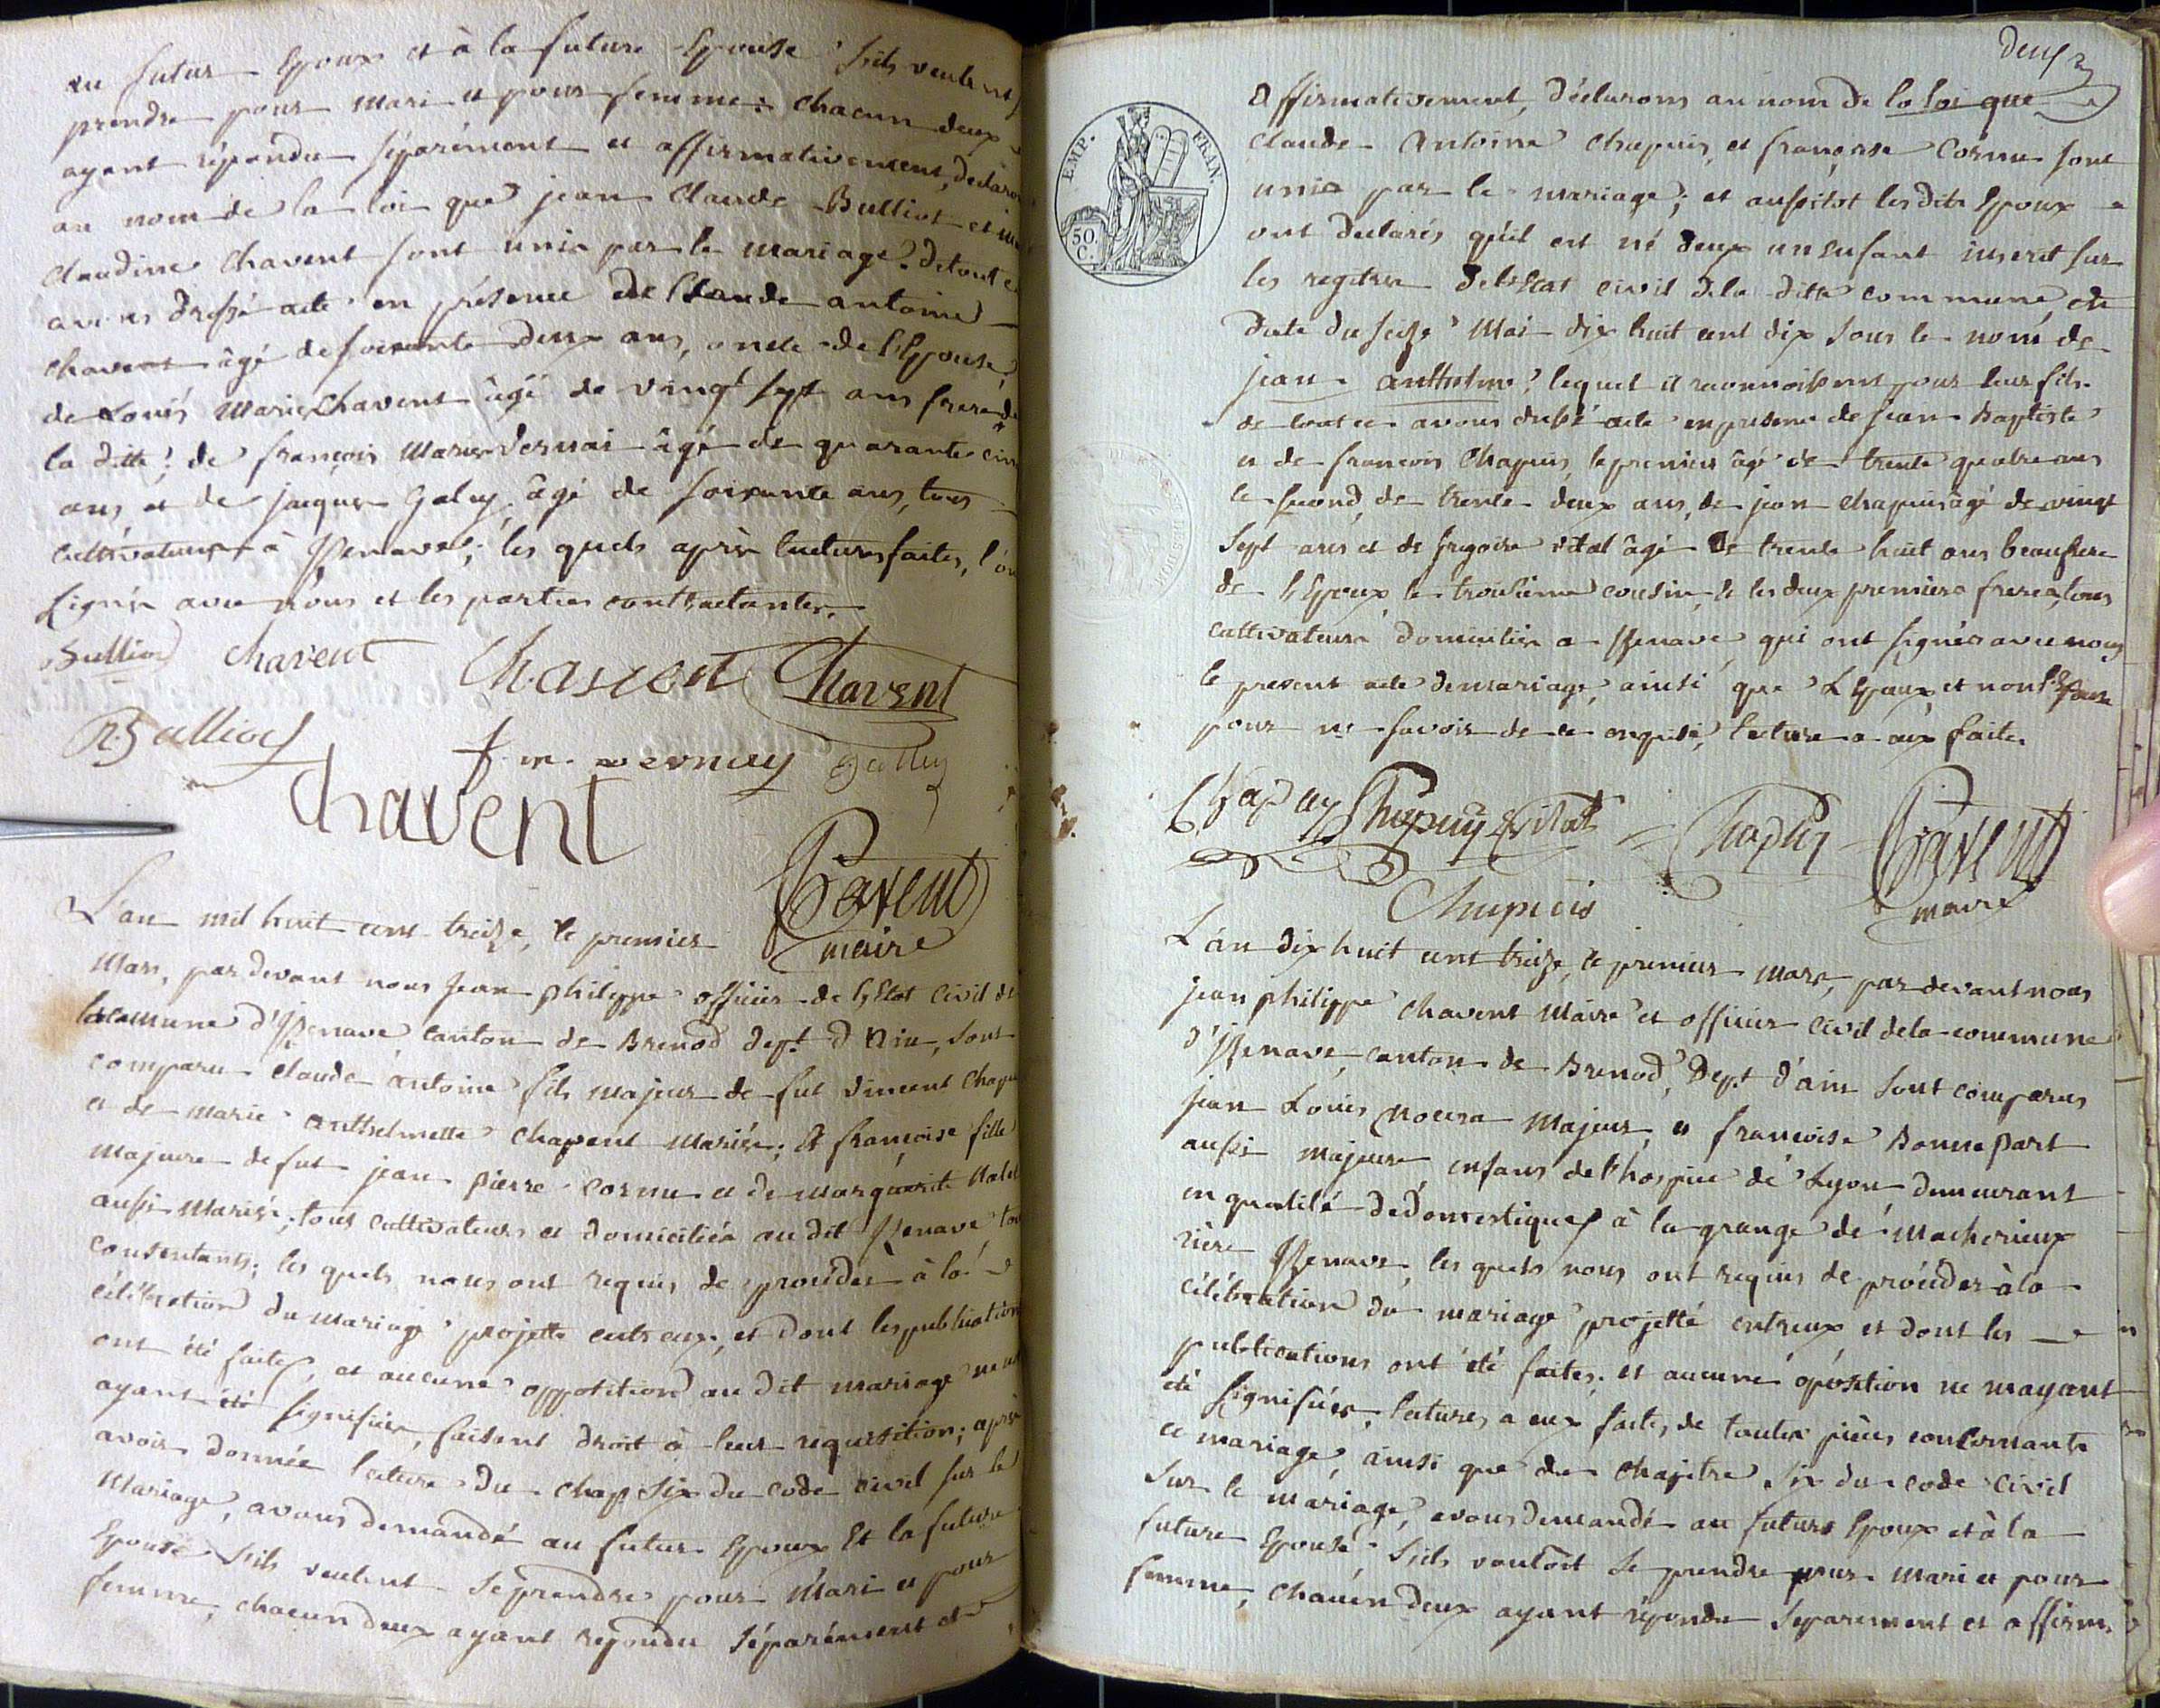 au futur Epoux et à la future Epouse s'ils veulent
prendre pour mari et pour femme: chacun deux
ayant répondu séparément et affirmativement, declarons
au nom de la loi que jean Claude Bulliot et
Claudine Chavent sont unis par le mariage. de tout ce
avons dressé acte en présence de Claude antoine
Chavent âgé de soixante deux ans, oncle de l'Epouse,
de Louis Marie Chavent âgé de vingt sept ans frere de
la ditte; de françois Marie Vernai âgé de quarante cinq
ans, et de jacques Galay, âgé de soixante ans, tous
cultivateurs à Izenave; les quels après lectures faites, l'ont
signés avec nous et les parties contractantes.
Bulliod Chavent Chavent Chavent
Bulliod f. m. vernay Galley
Chavent
Chavent
maire
L'an mil huit cent treize, le premier
Mars, par devant nous Jean philippe officier de l'Etat Civil de
la comune d'Izenave canton de Brenod dept. d'Ain, sont
comparu Claude antoine fils majeur de fut vincent Chapuis
et de marie antthelmette Chapent mariés; Et françoise fille
majeure de fut jean pierre Cornu et de marguerite
aussi mariés; tous cultivateurs et domiciliés au dit Izenave, tous
consentants; les quels nous ont requis de procéder à la
célébration du mariage projetté entr'eux; et dont les publications
ont été faites, et aucune opposition au dit mariage ne
ayant été signifiées, faisant droit à leur réquisition; après
avoir donnée lecture du chap six du code civil sur le
Mariage, avons demandé au futur Epoux Et la future
Epouse s'ils veulent se prendre pour Mari et pour
femme, chacun deux ayant répondu séparément et
deux
Affirmativement, déclarons au nom de la loi que
Claude Antoine Chapuis, et françoise Cornu sont
unis par le mariage; et aussitot les dits Epoux
ont declarés qu'il est né deux un enfant inscrit sur
les registres de l'Etat civil de la ditte commune, en
date du seize Mai dix huit cent dix sous le nom de
jean antthelme; lequel il reconnoissent pour leur fils.
de tout ce avons dressé acte en presence de Jean Baptiste
et de francois Chapuis, le premier âgé de trente quatre ans
le second, de trente deux ans, de jean Chapuis âgé de vingt
sept ans et de gregoire vital âgé de trente huit ans beaufrere
de l'Epoux, le troisieme cousin, & les deux premiers freres, tous
cultivateurs domicilies a Izenave, qui ont signés avec nous
le present acte de mariage, ainsi que l'Epoux, et non l'Epouse
pour ne savoir de ce enquise, lecture a eux faite.
EMP. FRAN.
50. C.
Chapuy Chapuy G vital Chapuis Chavent
Chapuis maire
L'an dix huit cent treize, le premier mars, par devant nous
jean philippe Chavent Maire et officier civil de la commune
d'Izenave, canton de Brenod, Dept d'ain sont comparus
jean Louis Noura Majeur, et francoise Bonne part
aussi majeure enfans de l'hospice de Lyon demeurant
en qualité de Domestiques à la grange de Macherieux
rière Izenave, les quels nous ont requis de procéder à la
célébration du mariage projetté entreux et dont les
publications ont été faites; et aucune oposition ne mayant
été signifiées, lectures a eux faite, de toutes pieces concernants
ce mariage, ainsi que du chapitre six du code civil
sur le mariage, avons demandé au futur Epoux et à la
future Epouse, s'ils vouloit se prendre pour mari et pour
femme, chacun deux ayant répondu séparement et affirm.